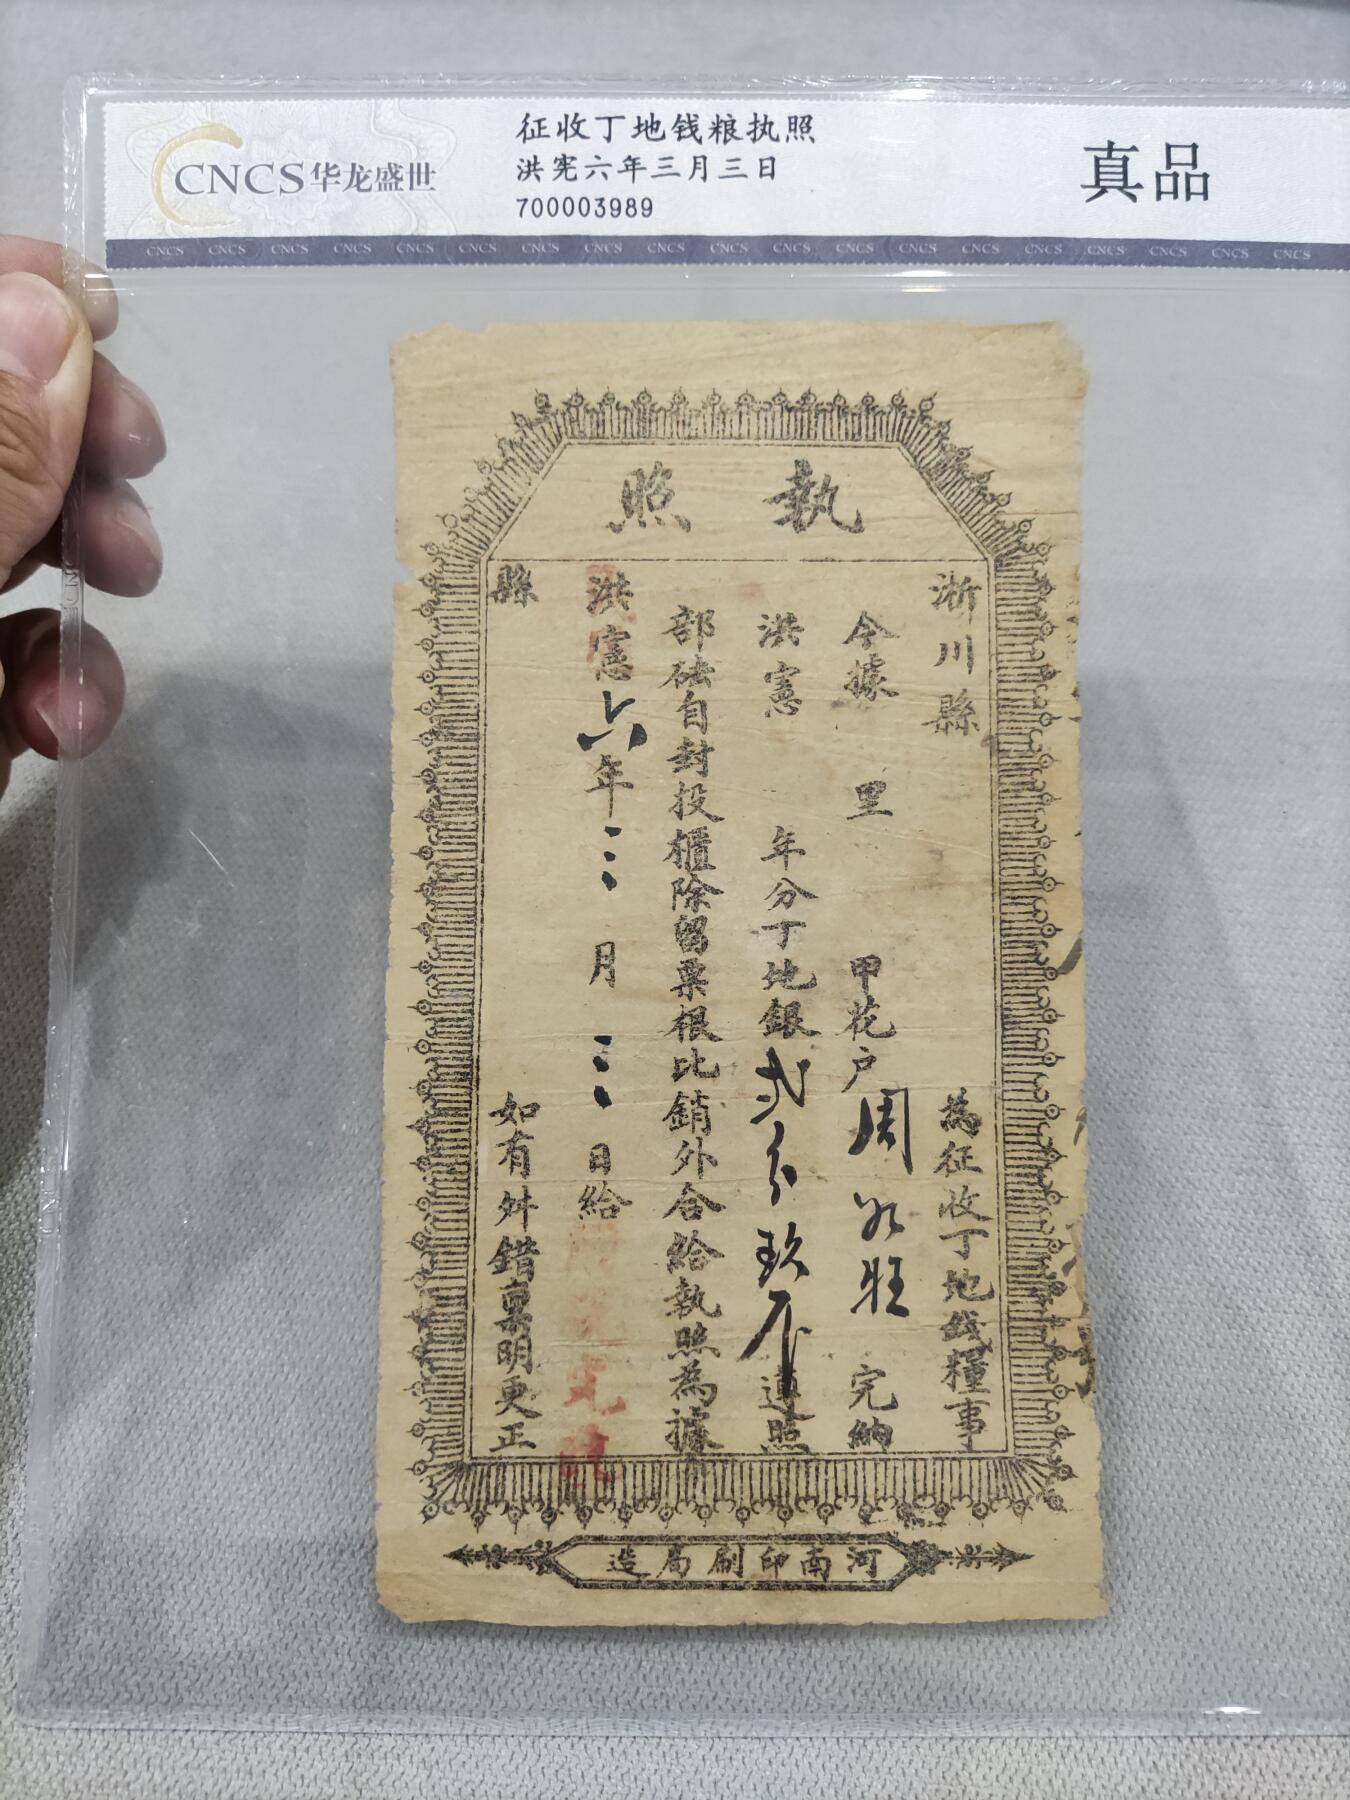 CNCS华龙盛世
征收丁地钱粮执照
洪宪六年三月三日
700003989
真品
CNCS CNCS CNCS CNCS CNCS CNCS CNCS CNCS CNCS CNCS CNCS CNCS CNCS CNCS CNCS CNCS CNCS CNCS CNCS
執照
淅川縣 為征收丁地錢糧事
今據 里 甲花户周 旺 完納
洪憲 年分丁地銀弍分玖厘遵照
部砝自封投櫃除留票根比銷外合給執照為據
洪憲六年三月三日給
縣 如有舛錯稟明更正
河南印刷局造